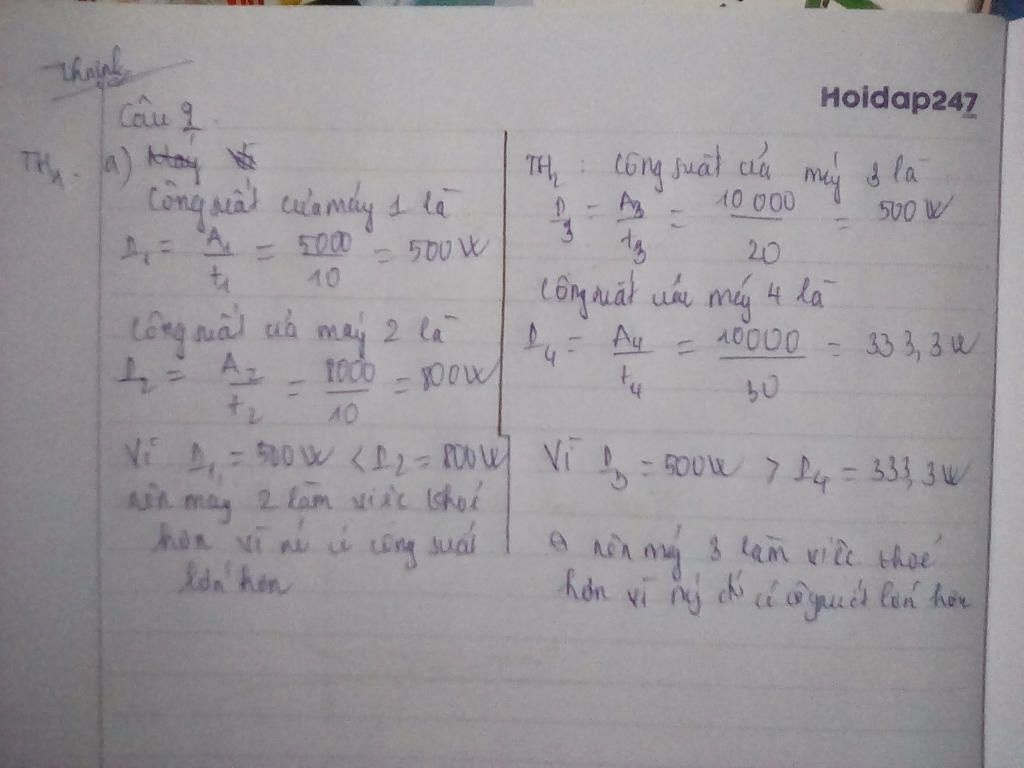 Thainh
Hoidap247
Câu 9
TH1. a)
Công suất của máy 1 là
P1 = A1/t1 = 5000/10 = 500W
Công suất của máy 2 là
P2 = A2/t2 = 8000/10 = 800W
Vì P1 = 500W < P2 = 800W
nên máy 2 làm việc khoẻ
hơn vì nó có công suất
lớn hơn
TH2: Công suất của máy 3 là
P3 = A3/t3 = 10 000/20 = 500W
Công suất của máy 4 là
P4 = A4/t4 = 10000/30 = 333,3W
Vì P3 = 500W > P4 = 333,3W
nên máy 3 làm việc khoẻ
hơn vì có công suất lớn hơn